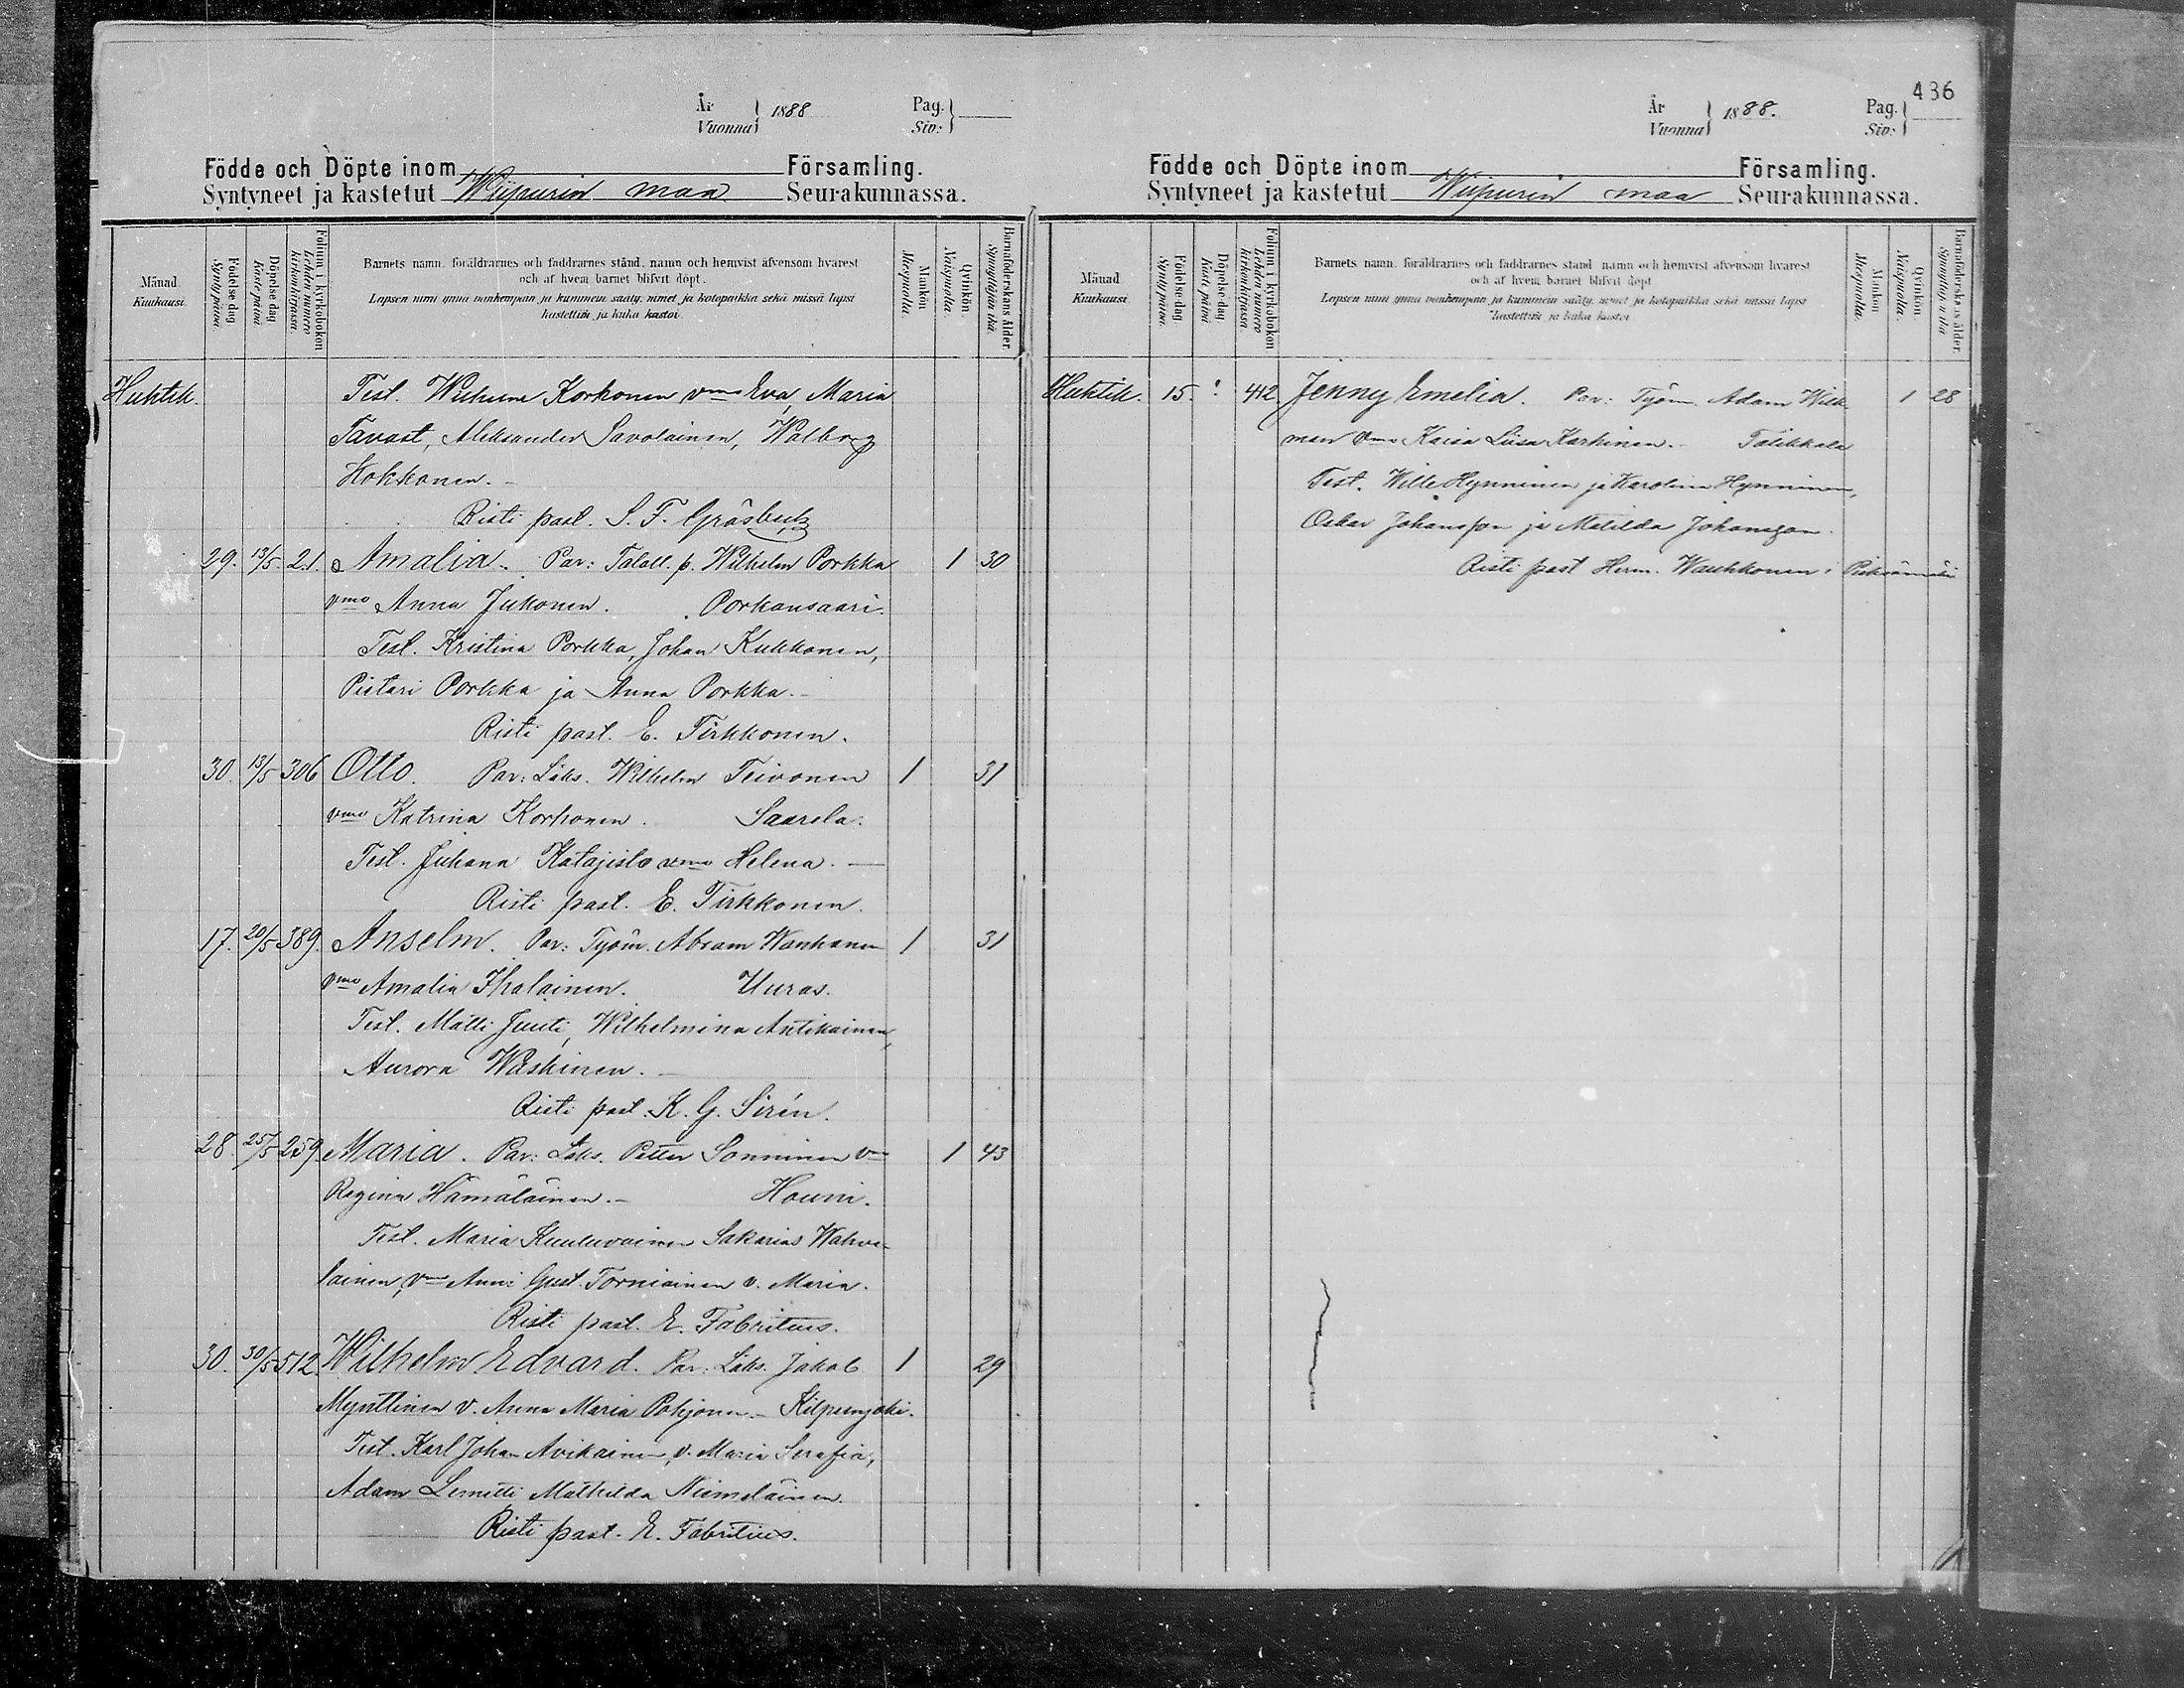 436
År
Vuonna
1888
Pag.
Siv:
Födde och Döpte inom Församling.
Syntyneet ja kastetut Wiipurin maa Seurakunnassa.
Månad.
Kuukausi.
Födelse dag.
Synty päivä.
Döpelse dag
Kaste päivä
Folium i kyrkoboken
Lehden numero kirkonkirjassa.
Barnets namn, föräldrarnes och faddrarnes stånd, namn och hemvist äfvensom hvarest
och af hvem barnet blifvit döpt.
Lapsen nimi ynnä vanhempain ja kummein sääty, nimet ja kotopaikka sekä missä lapsi
kastettiin ja kuka kastoi.
Mankön
Miespuolia.
Qvinkön.
Naispuolia.
Barnaföderskans ålder.
Synnyttäjän ikä.
Huhtik.
Test. Wilhelm Korhonen vmo Eva Maria
Tavast, Aleksander Savolainen, Walborg
Hokkanen.
Risti past. S. F. Gräsbeck
29. 13/5. 21. Amalia. Par: Taloll. p. Wilhelm Porkka 1 30
vmo Anna Jukonen. Porkansaari.
Test. Kristina Porkka, Johan Kukkonen,
Pietari Porkka ja Anna Porkka.
Risti past. E. Tirkkonen.
30. 13/5 306 Otto. Par: Läks. Wilhelm Teivonen 1 31
vmo Katrina Korhonen. Saarela.
Test. Juhana Katajisto vmo Helena.
Risti past. E. Tirkkonen.
17. 20/5 389. Anselm. Par: Työm. Abram Wanhanen 1 31
vmo Amalia Ihalainen. Uuras.
Test. Matti Juuti, Wilhelmina Antikainen,
Aurora Waskinen.
Risti past. K. G. Sirén.
28. 25/5 259. Maria. Par: Läks. Petter Sonninen vmo 1 43
Regina Hämäläinen. Houni.
Test. Maria Kuuluvainen Sakarias Wahva-
lainen, vmo Anni Gust. Torniainen v. Maria.
Risti past. E. Fabritius.
30. 30/5 512. Wilhelm Edvard. Par: Läks. Jakob 1 29
Mynttinen v. Anna Maria Pohjonen. Kilpeenjoki.
Test. Karl Johan Avikainen, v. Maria Serafia,
Adam Lemetti Mathilda Niemeläinen.
Risti past. E. Fabritius.
År
Vuonna
1888.
Pag.
Siv:
Födde och Döpte inom Församling.
Syntyneet ja kastetut Wiipurin maa Seurakunnassa.
Månad.
Kuukausi.
Födelse dag.
Synty päivä.
Döpelse dag.
Kaste päivä
Folium i kyrkoboken
Lehden numero kirkonkirjassa.
Barnets namn, föräldrarnes och faddrarnes stånd, namn och hemvist äfvensom hvarest
och af hvem barnet blifvit döpt.
Lapsen nimi ynnä vanhempain ja kummein sääty, nimet ja kotopaikka sekä missä lapsi
kastettiin ja kuka kastoi.
Mankön
Miespuolia.
Qvinkön.
Naispuolia.
Barnaföderskans ålder.
Synnyttäjän ikä
Huhtik. 15. ? 442 Jenny Emelia. Par: Työm. Adam Wilk 1 28
man vmo Kaisa Liisa Karhinen. Talikkala
Test. Wille Hynninen ja Karolina Hynninen,
Oskar Johansson ja Matilda Johansson.
Risti past Herm. Wauhkonen: Pieksämäki